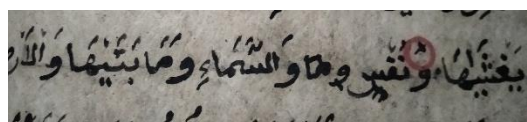 يَغْشَيٰهَا وَنَفْسٍ وَمَا وَالسَّمَاءِ وَمَا بَنَيْهَا وَالْأَر